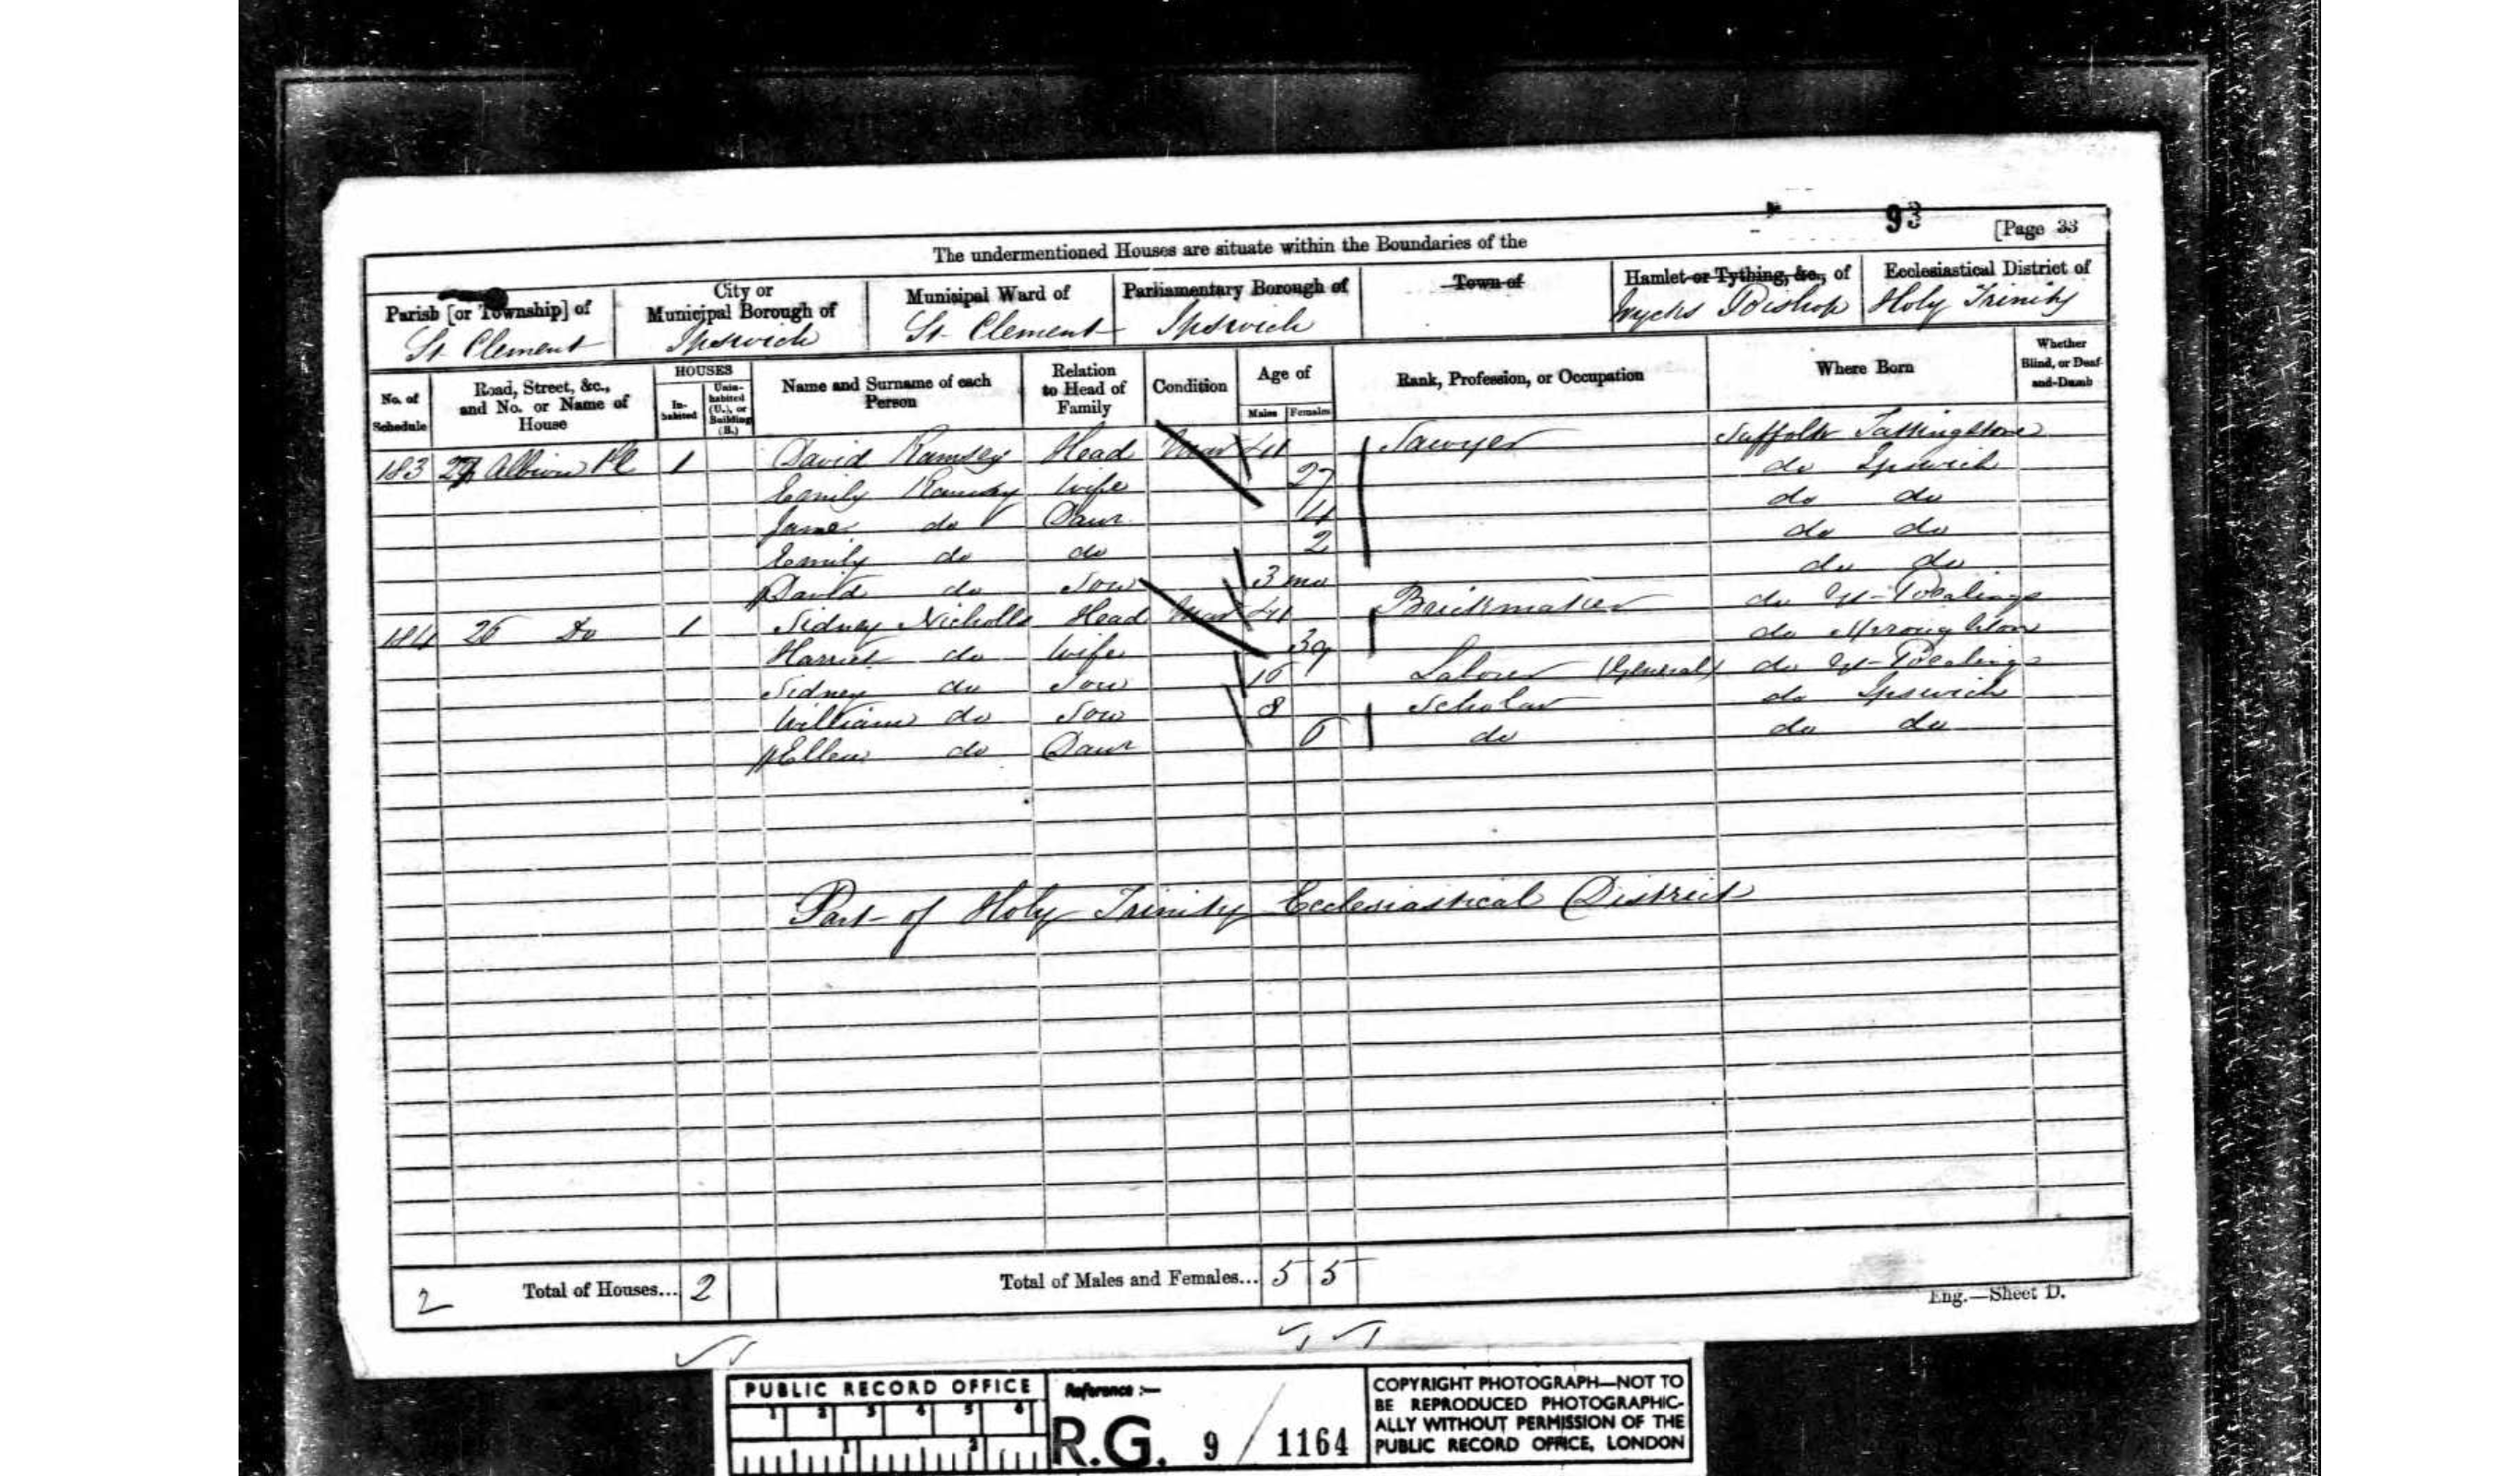 93
[Page 33
The undermentioned Houses are situate within the Boundaries of the
Parish [or Township] of
St. Clement
City or Municipal Borough of
Ipswich
Municipal Ward of
St. Clement
Parliamentary Borough of
Ipswich
Town of
Hamlet or Tything, &c., of
Wycks Bishop
Ecclesiastical District of
Holy Trinity
No. of Schedule
Road, Street, &c., and No. or Name of House
HOUSES
In-habited
Unin-habited (U.), or Building (B.)
Name and Surname of each Person
Relation to Head of Family
Condition
Age of
Males Females
Rank, Profession, or Occupation
Where Born
Whether Blind, or Deaf-and-Dumb
183 Albion Pl 1 David Ramsey Head Mar 41 Sawyer Suffolk Tattingstone
Emily Ramsey Wife 27 do Ipswich
Jane do Daur 4 do do
Emily do do 2 do do
David do Son 3 mo do do
184 26 Do 1 Sidney Nicholls Head Mar 41 Brickmaker do Gt Bealings
Harriet do Wife 39 do Sproughton
Sidney do Son 16 Labourer (General) do Gt Bealings
William do Son 8 Scholar do Ipswich
Ellen do Daur 6 do do do
Part of Holy Trinity Ecclesiastical District
2 Total of Houses... 2 Total of Males and Females... 5 5
Eng.—Sheet D.
PUBLIC RECORD OFFICE
1 2 3 4 5 6
1 2
Reference :—
R.G. 9 / 1164
COPYRIGHT PHOTOGRAPH—NOT TO
BE REPRODUCED PHOTOGRAPHIC-
ALLY WITHOUT PERMISSION OF THE
PUBLIC RECORD OFFICE, LONDON